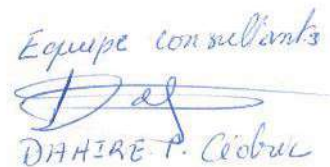 Equipe consultants
DAHIRE P. Cédric